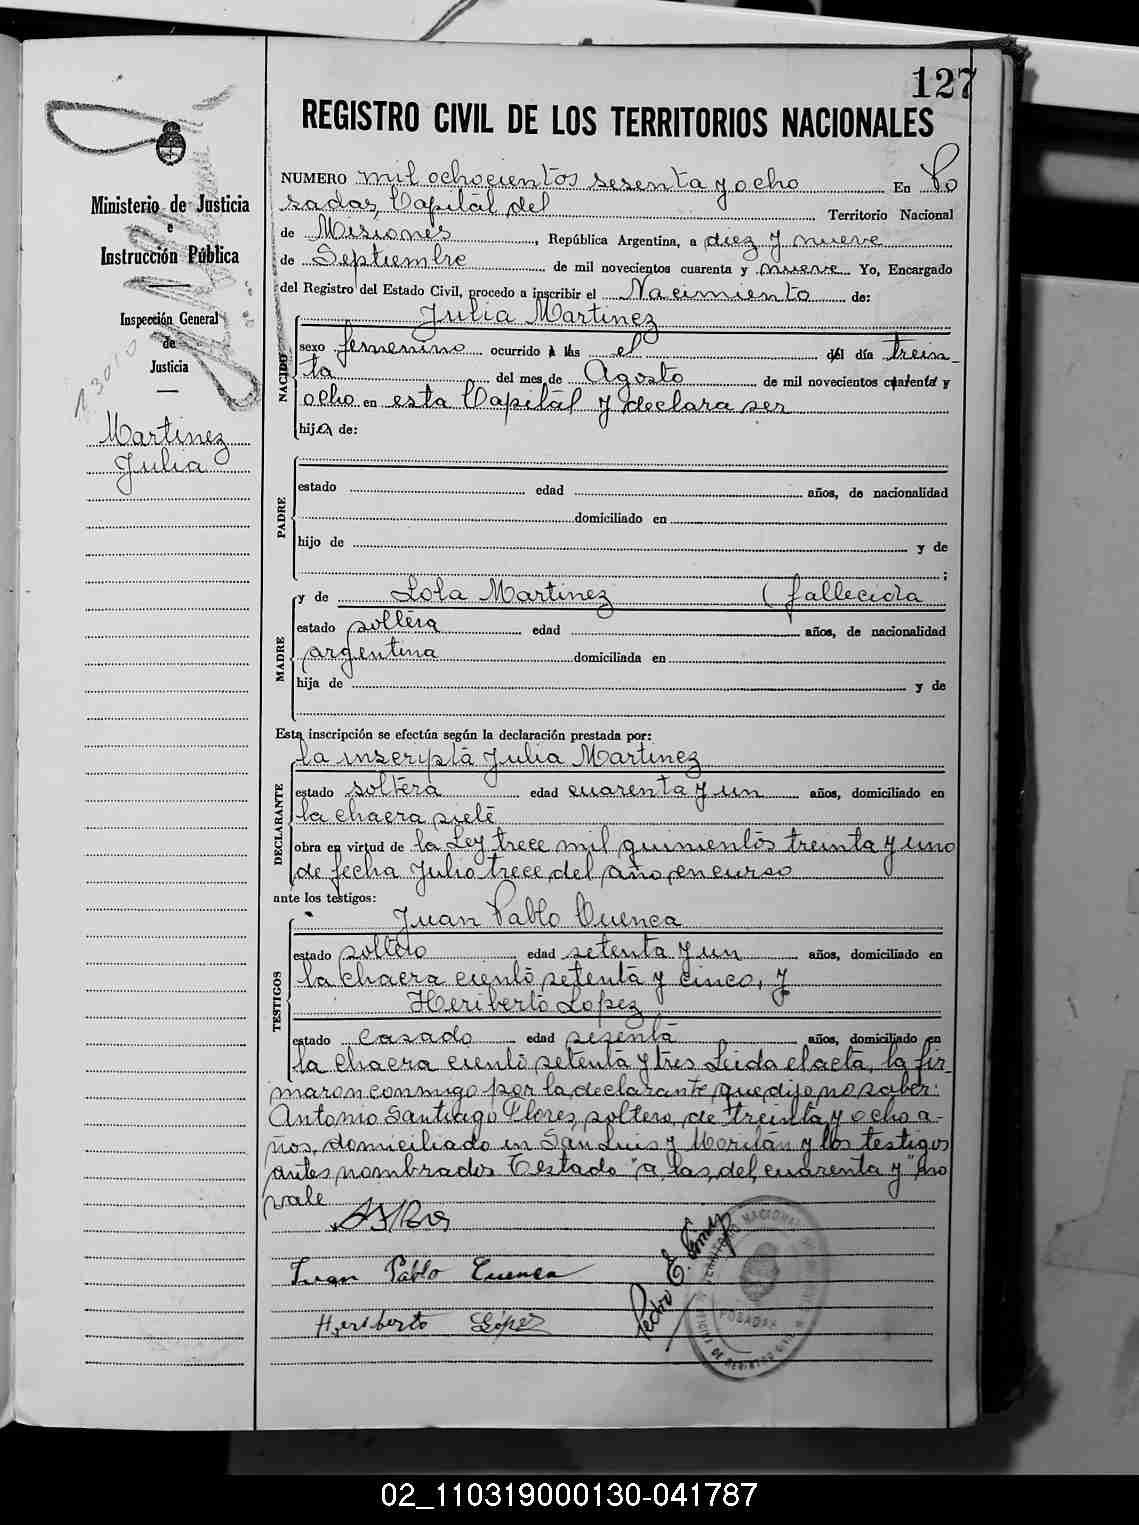 127
REGISTRO CIVIL DE LOS TERRITORIOS NACIONALES
Ministerio de Justicia
e
Instrucción Pública
Inspección General
de
Justicia
Martinez
Julia
NUMERO mil ochocientos sesenta y ocho En Po
sadas, Capital del Territorio Nacional
de Misiones, República Argentina, a diez y nueve
de Septiembre de mil novecientos cuarenta y nueve Yo, Encargado
del Registro del Estado Civil, procedo a inscribir el Nacimiento de:
NACIDO
Julia Martinez
sexo femenino ocurrido a las el del día trein
ta del mes de Agosto de mil novecientos cuarenta y
ocho en esta Capital y declara ser
hija de:
PADRE
estado edad años, de nacionalidad
domiciliado en
hijo de y de
;
MADRE
y de Lola Martinez (fallecida
estado soltera edad años, de nacionalidad
argentina domiciliada en
hija de y de
Esta inscripción se efectúa según la declaración prestada por:
DECLARANTE
la inscripta Julia Martinez
estado soltera edad cuarenta y un años, domiciliado en
la chacra siete
obra en virtud de la Ley trece mil quinientos treinta y uno
de fecha Julio trece del año en curso
ante los testigos:
TESTIGOS
Juan Pablo Cuenca
estado soltero edad setenta y un años, domiciliado en
la chacra ciento setenta y cinco, y
Heriberto Lopez
estado casado edad sesenta años, domiciliado en
la chacra ciento setenta y tres Leida el acta, la fir
maron conmigo por la declarante que dijo no saber:
Antonio Santiago Flores, soltero, de treinta y ocho a-
ños, domiciliado en San Luis y y los testigos
antes nombrados Testado "a las, del, cuarenta y" no
vale
Juan Pablo Cuenca
Heriberto López
Pedro E.
POSADAS
02_110319000130-041787